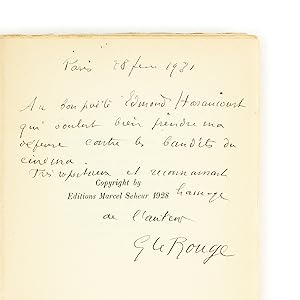 Paris 28 fev 1931
Au bon poète Edmond Haraucourt
qui voulut bien prendre ma
défense contre les bandits du
cinéma.
Très respectueux et reconnaissant
Copyright by
hommage
Editions Marcel Seheur 1928
de l'auteur
G Le Rouge